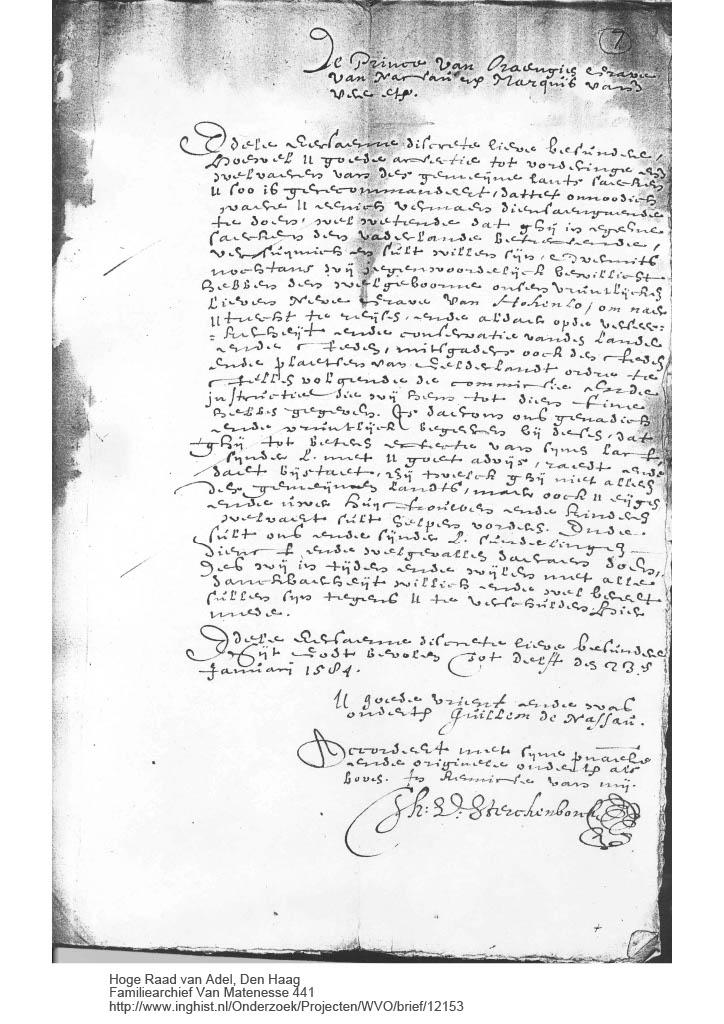 7
De Prince van Oraengien Grave
van Nassau etc Marquis vander
Vere etc.
Edele Eersaeme discrete lieve besundere,
Hoewel U goede affectie tot vorderinge ende
welvaeren van des gemeyne lants saecken
U soo is gerecommandeert, dattet onnoodich
waere U eenich vermaen diensaengaende
te doen, wel wetende dat ghij in egeene
saecken den vaderlande betreffende,
versuymich en sult willen sijn, Evermits
nochtans wij jegenwoordelijck bewillicht
hebben den welgeboorne onsen vruntlijcken
lieven Neve Grave van Hohenlo, om naer
Utrecht te reijsen, ende aldaer opde verseec-
kerheijt ende conservatie vandes landen
ende steden, mitsgaders oock des steden
ende plaetsen van Gelderlandt ordre te
stellen volgende de commissie ende
instructie die wij hem tot dien fine
hebben gegeven. Is daerom ons genadich
ende vruntlijck begeeren bij desen, dat
ghij tot beteren effecte van syns last
synder L. met U goet advijs, raedt ende
daet bijstaet, Bij twelck ghij niet alleen
des gemeynen landts, maer oock U eijgen
ende uwe huysfrouwen ende kinderen
welvaert sult helpen vorderen. Ende
sult ons ende synder L. sunderlingen
dienst ende welgevallen daeraen doen,
des wij in tijden ende wijlen met alle
danckbaerheijt willich ende wel bereet
sullen syn tegens U te verschulden Hier
mede.
Edele Eersaeme discrete lieve besundere
Sijt Godt bevolen Tot Delft den 23en
Januarij 1584.
U goede vrient ende was
onderte Guillem de Nassau.
Accordeert met syne
ende originele onderte als
boven. In kennisse van mij.
Th: V: Sterchenborch
Hoge Raad van Adel, Den Haag
Familiearchief Van Matenesse 441
http://www.inghist.nl/Onderzoek/Projecten/WVO/brief/12153